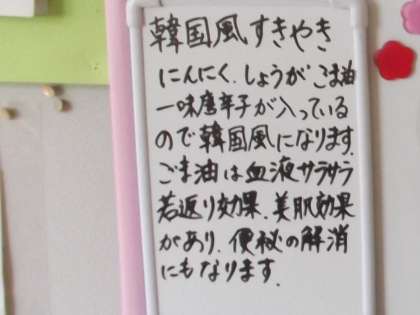 韓国風すきやき
にんにく、しょうが、ごま油
一味唐辛子が入っている
ので韓国風になります。
ごま油は血液サラサラ
若返り効果、美肌効果
があり、便秘の解消
にもなります。